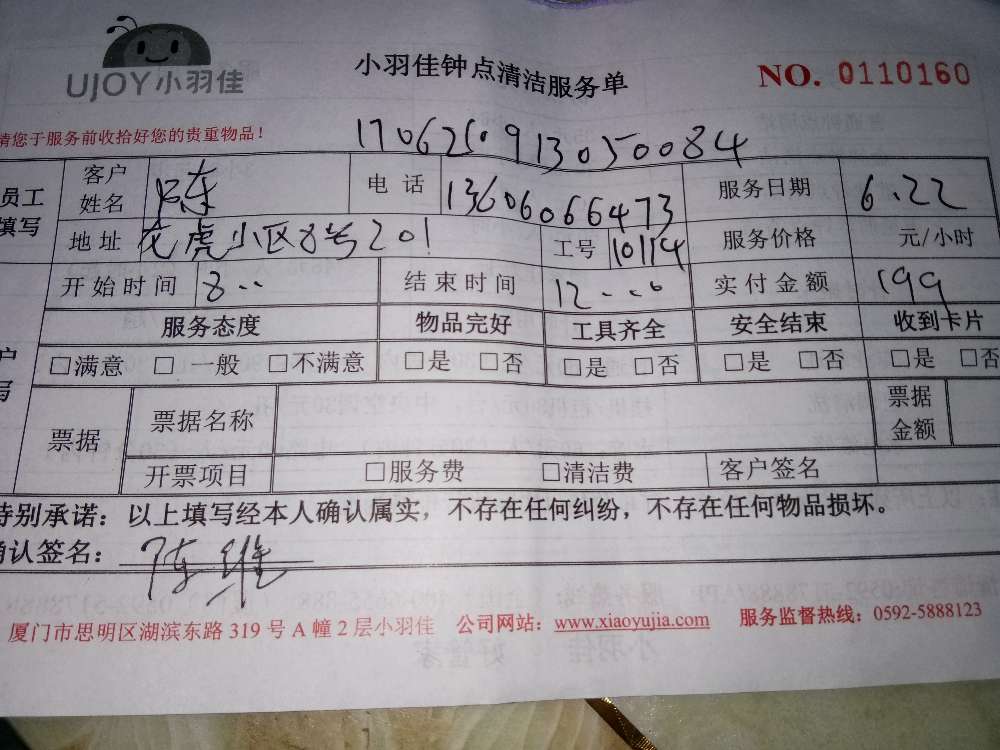 UJOY小羽佳
小羽佳钟点清洁服务单
NO. 0110160
请您于服务前收拾好您的贵重物品！
170625091305 0084
员工填写 客户姓名 陈 电话 13606066473 服务日期 6.22
地址 龙虎小区8号201 工号 10114 服务价格 元/小时
开始时间 8:00 结束时间 12:00 实付金额 199
服务态度 物品完好 工具齐全 安全结束 收到卡片
□满意 □一般 □不满意 □是 □否 □是 □否 □是 □否 □是 □否
票据 票据名称 票据金额
开票项目 □服务费 □清洁费 客户签名
特别承诺：以上填写经本人确认属实，不存在任何纠纷，不存在任何物品损坏。
确认签名：陈维
厦门市思明区湖滨东路 319 号 A 幢 2 层小羽佳 公司网站：www.xiaoyujia.com 服务监督热线：0592-5888123